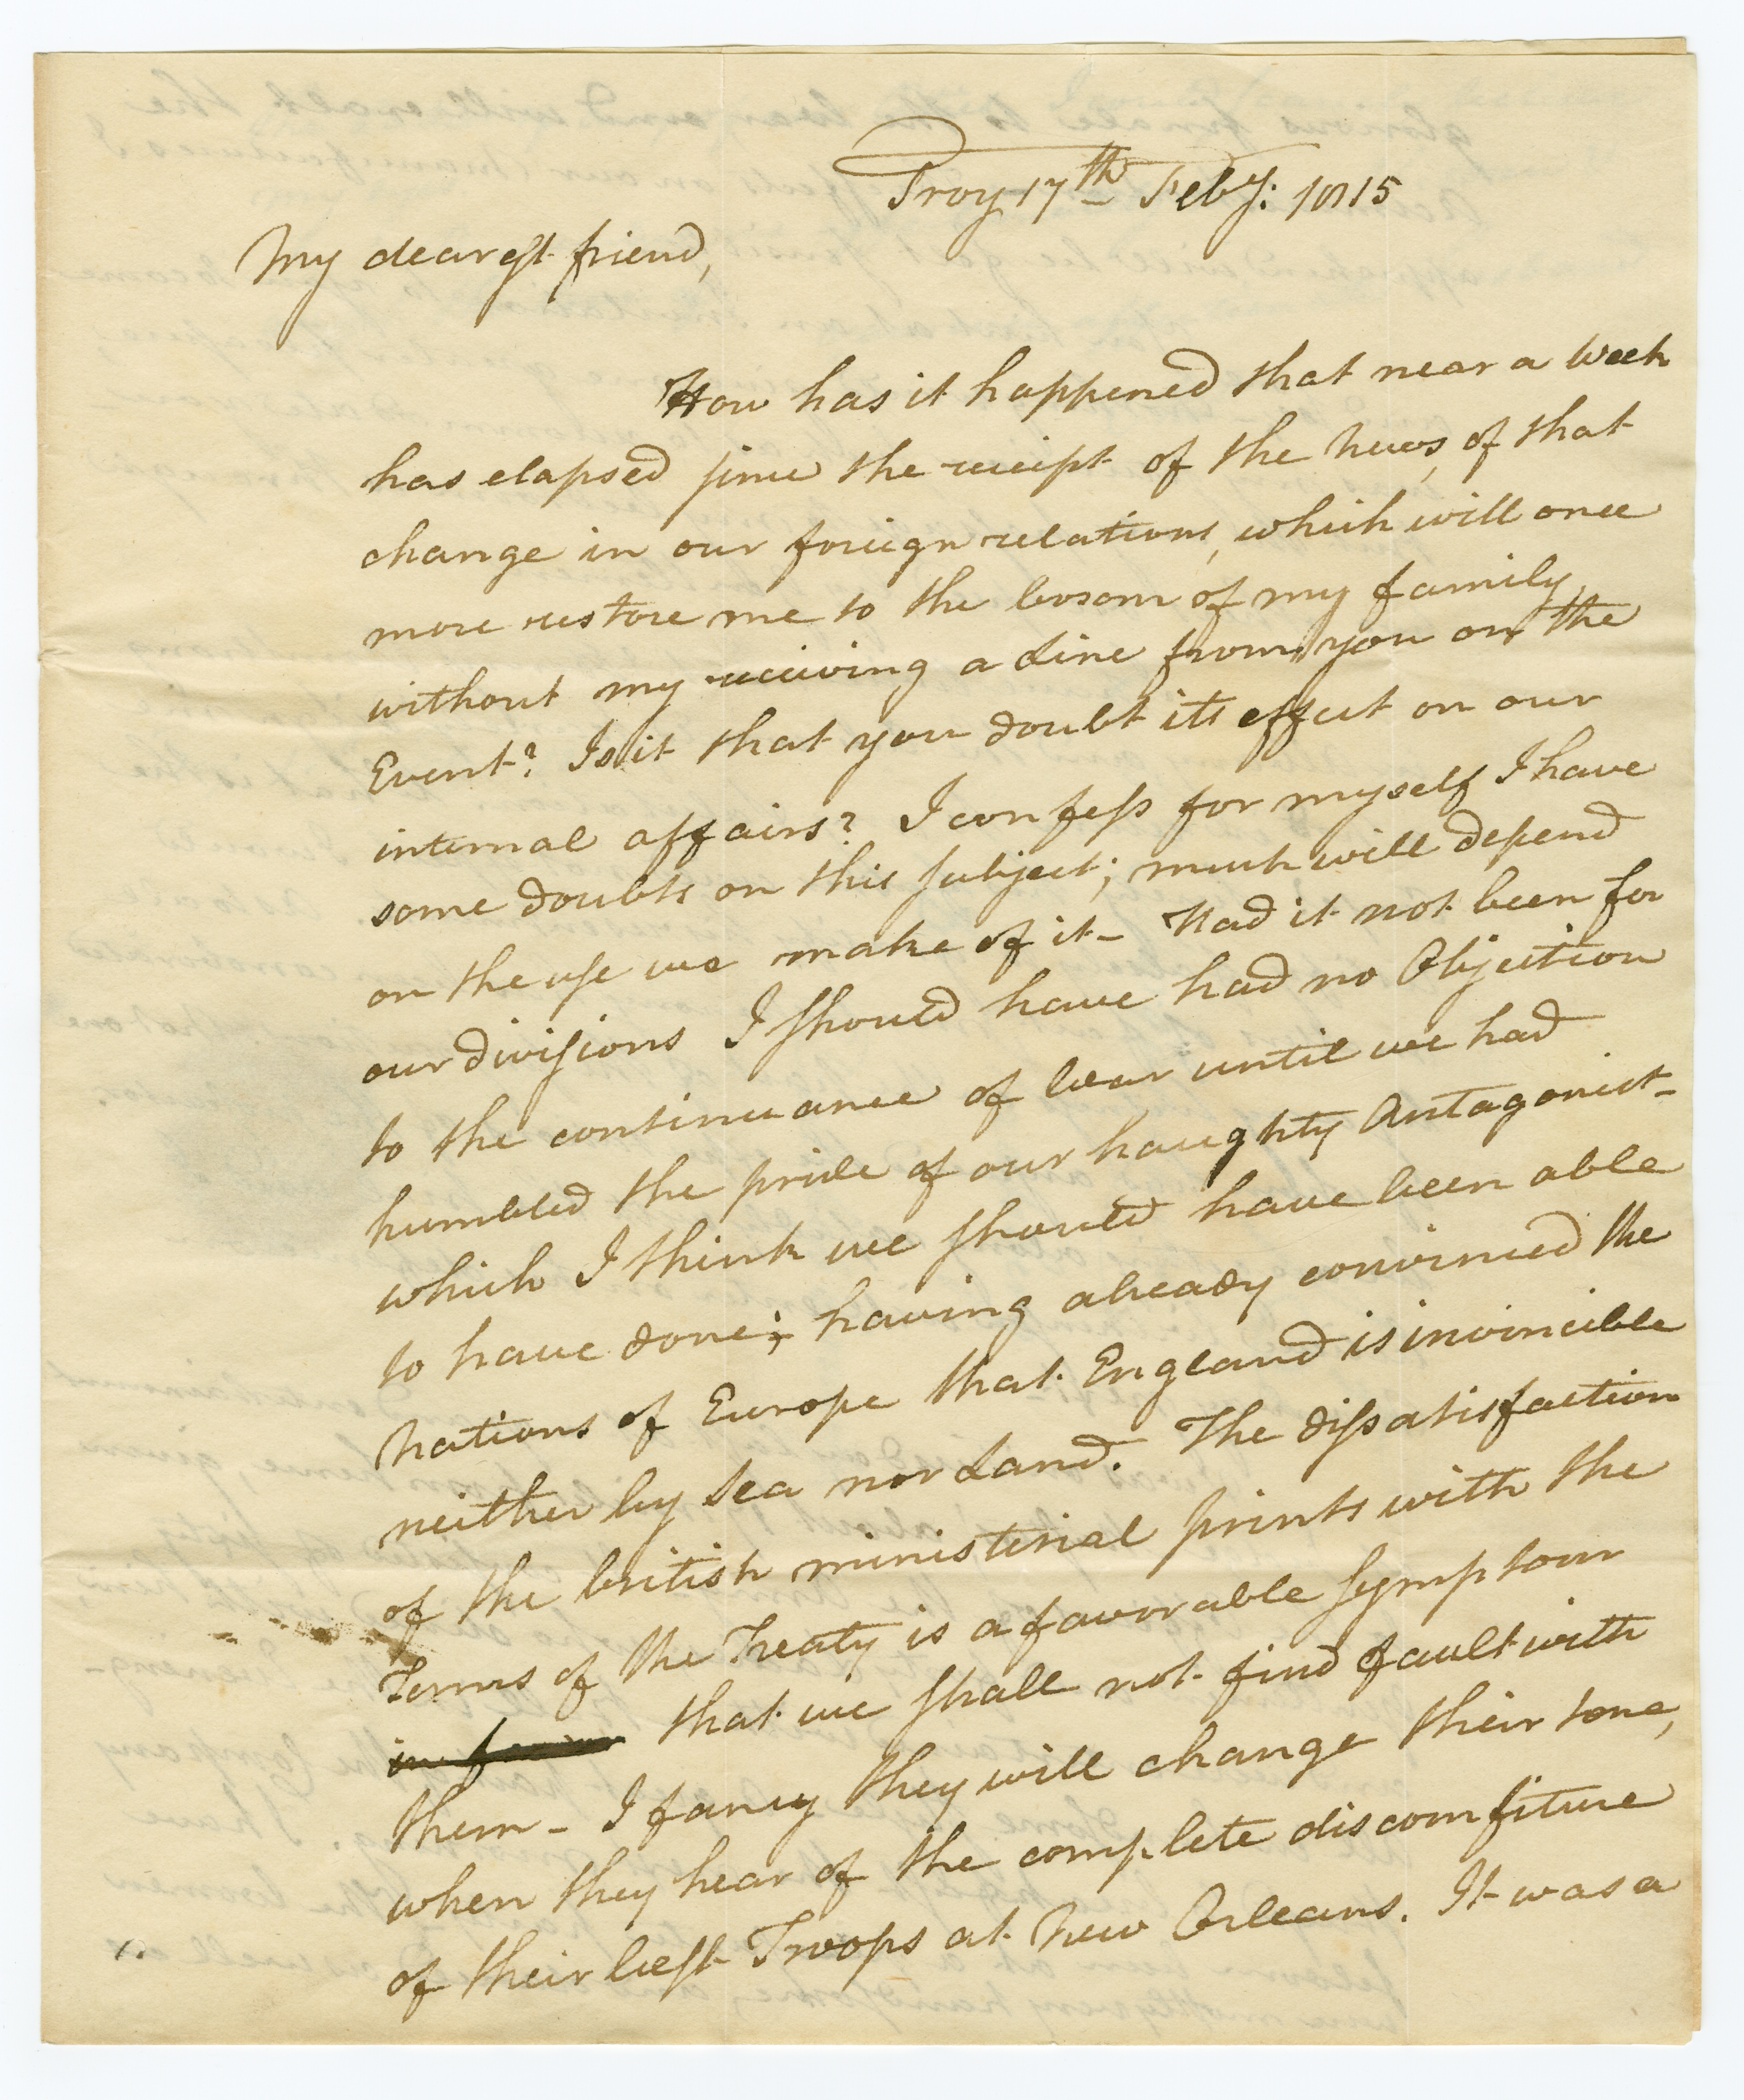 Troy 17th Feby: 1815
My dearest friend,
How has it happened that near a Week
has elapsed since the receipt of the News, of that
change in our foreign relations, which will once
more restore me to the bosom of my family,
without my receiving a Line from you on the
Event? Is it that you doubt its effect on our
internal affairs? I confess for myself I have
some doubts on this subject; much will depend
on the use we make of it - Had it not been for
our divisions I should have had no Objection
to the continuance of War until we had
humbled the pride of our haughty Antagonist -
which I think we should have been able
to have done; having already convinced the
Nations of Europe that England is invincible
neither by Sea nor Land. The dissatisfaction
of the british ministerial prints with the
Terms of the Treaty is a favorable symptom
that we shall not find fault with
them - I fancy they will change their tone,
when they hear of the complete discomfiture
of their best Troops at New Orleans. It was a
1.